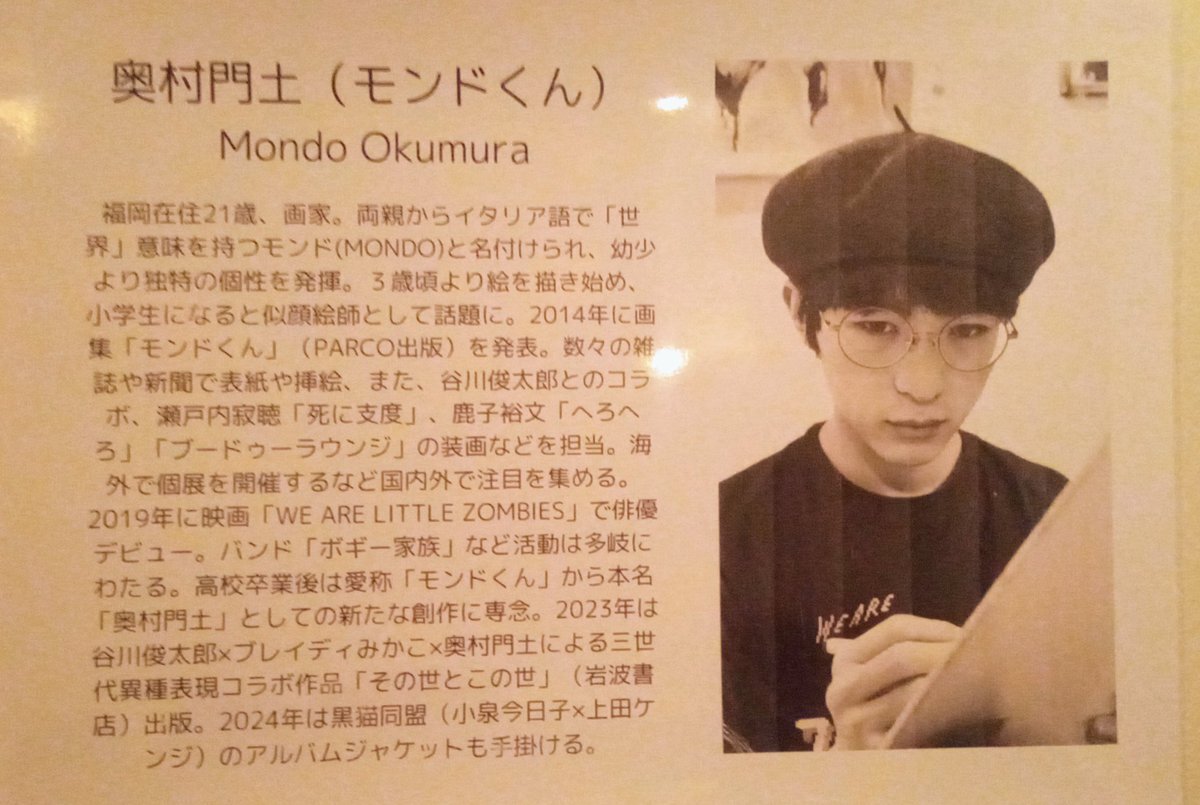 奥村門土（モンドくん）
Mondo Okumura
福岡在住21歳、画家。両親からイタリア語で「世
界」意味を持つモンド(MONDO)と名付けられ、幼少
より独特の個性を発揮。３歳頃より絵を描き始め、
小学生になると似顔絵師として話題に。2014年に画
集「モンドくん」（PARCO出版）を発表。数々の雑
誌や新聞で表紙や挿絵、また、谷川俊太郎とのコラ
ボ、瀬戸内寂聴「死に支度」、鹿子裕文「へろへ
ろ」「ブードゥーラウンジ」の装画などを担当。海
外で個展を開催するなど国内外で注目を集める。
2019年に映画「WE ARE LITTLE ZOMBIES」で俳優
デビュー。バンド「ボギー家族」など活動は多岐に
わたる。高校卒業後は愛称「モンドくん」から本名
「奥村門土」としての新たな創作に専念。2023年は
谷川俊太郎×ブレイディみかこ×奥村門土による三世
代異種表現コラボ作品「その世とこの世」（岩波書
店）出版。2024年は黒猫同盟（小泉今日子×上田ケ
ンジ）のアルバムジャケットも手掛ける。
WE ARE